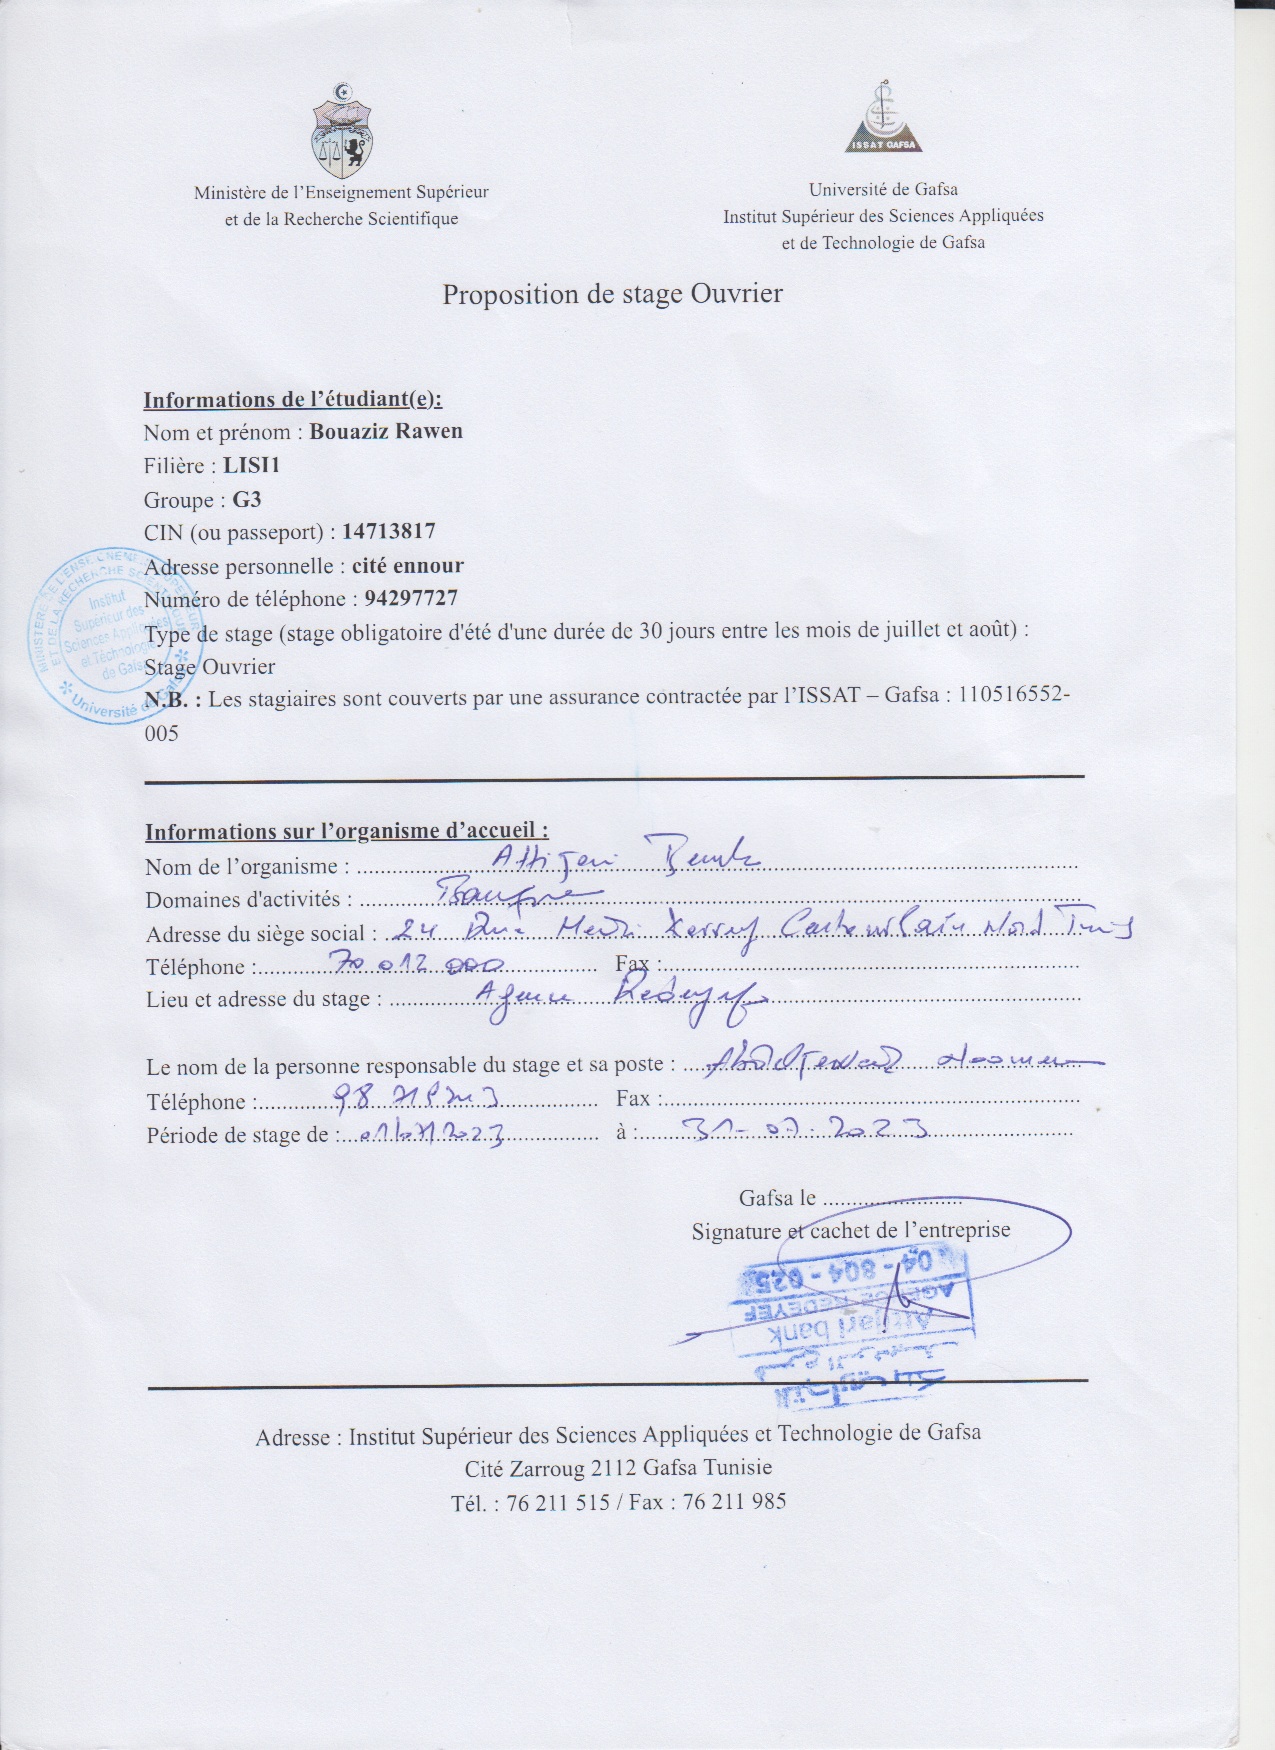 ISSAT GAFSA
Ministère de l'Enseignement Supérieur
et de la Recherche Scientifique
Université de Gafsa
Institut Supérieur des Sciences Appliquées
et de Technologie de Gafsa
Proposition de stage Ouvrier
Informations de l'étudiant(e):
Nom et prénom : Bouaziz Rawen
Filière : LISI1
Groupe : G3
CIN (ou passeport) : 14713817
Adresse personnelle : cité ennour
Numéro de téléphone : 94297727
Type de stage (stage obligatoire d'été d'une durée de 30 jours entre les mois de juillet et août) :
Stage Ouvrier
N.B. : Les stagiaires sont couverts par une assurance contractée par l'ISSAT – Gafsa : 110516552-
005
Institut
Supérieur des
Sciences Appliquées
et Technologie
de Gafsa
Université de Gafsa
Informations sur l'organisme d'accueil :
Nom de l'organisme : Attijari Bank
Domaines d'activités : Banque
Adresse du siège social : 24 Rue Hedi Karray Centre Urbain Nord Tunis
Téléphone : 70 012 000 Fax :
Lieu et adresse du stage : Agence Redeyef
Le nom de la personne responsable du stage et sa poste :
Téléphone : Fax :
Période de stage de : 01/07/2023 à : 31-07-2023
Gafsa le
Signature et cachet de l'entreprise
04 - 804 - 025
AGENCE REDEYEF
Attijari bank
Adresse : Institut Supérieur des Sciences Appliquées et Technologie de Gafsa
Cité Zarroug 2112 Gafsa Tunisie
Tél. : 76 211 515 / Fax : 76 211 985